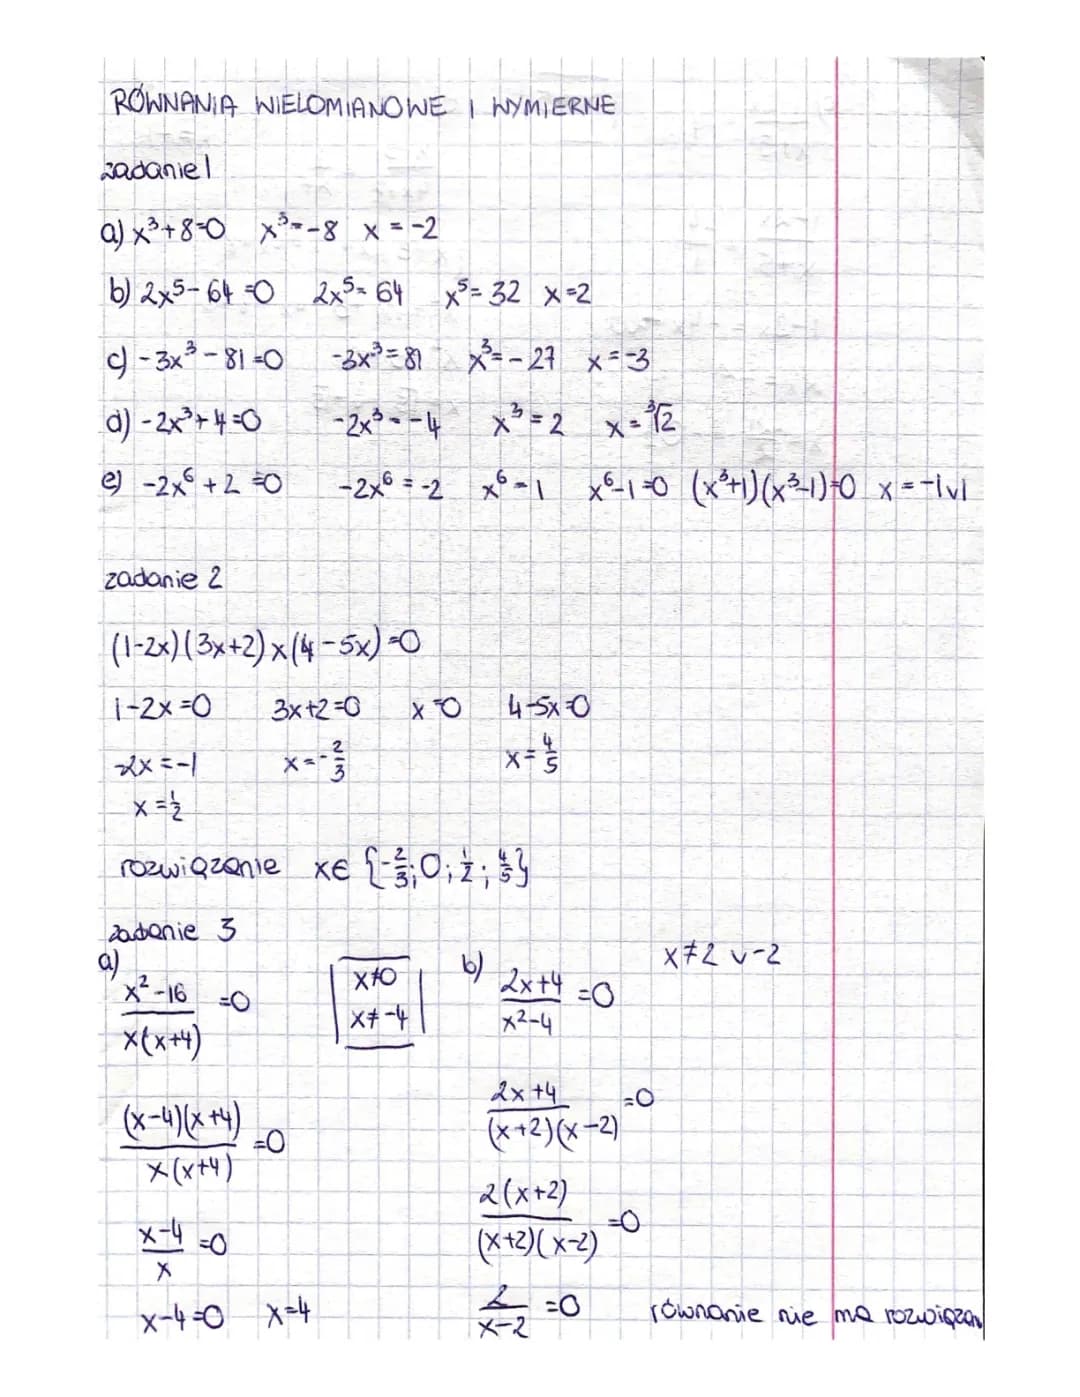 RÓWNANIA WIELOMIANOWE I WYMIERNE
zadanie 1
a) x³+8=0 x³=-8 x=-2
b) 2x⁵-64=0 2x⁵=64 x⁵=32 x=2
c) -3x³-81=0 -3x³=81 x³=-27 x=-3
d) -2x³+4=0 -2x³=-4 x³=2 x=∛2
e) -2x⁶+2=0 -2x⁶=-2 x⁶=1 x⁶-1=0 (x³+1)(x³-1)=0 x=-1∨1
zadanie 2
(1-2x)(3x+2)x(4-5x)=0
1-2x=0 3x+2=0 x=0 4-5x=0
-2x=-1 x=-2/3 x=4/5
x=1/2
rozwiązanie x∈{-2/3;0;1/2;4/5}
zadanie 3
a)
x²-16/x(x+4) =0
x≠0
x≠-4
(x-4)(x+4)/x(x+4) =0
x-4/x =0
x-4=0 x=4
b) 2x+4/x²-4 =0
x≠2 ∨ -2
2x+4/(x+2)(x-2) =0
2(x+2)/(x+2)(x-2) =0
2/x-2 =0 równanie nie ma rozwiązan